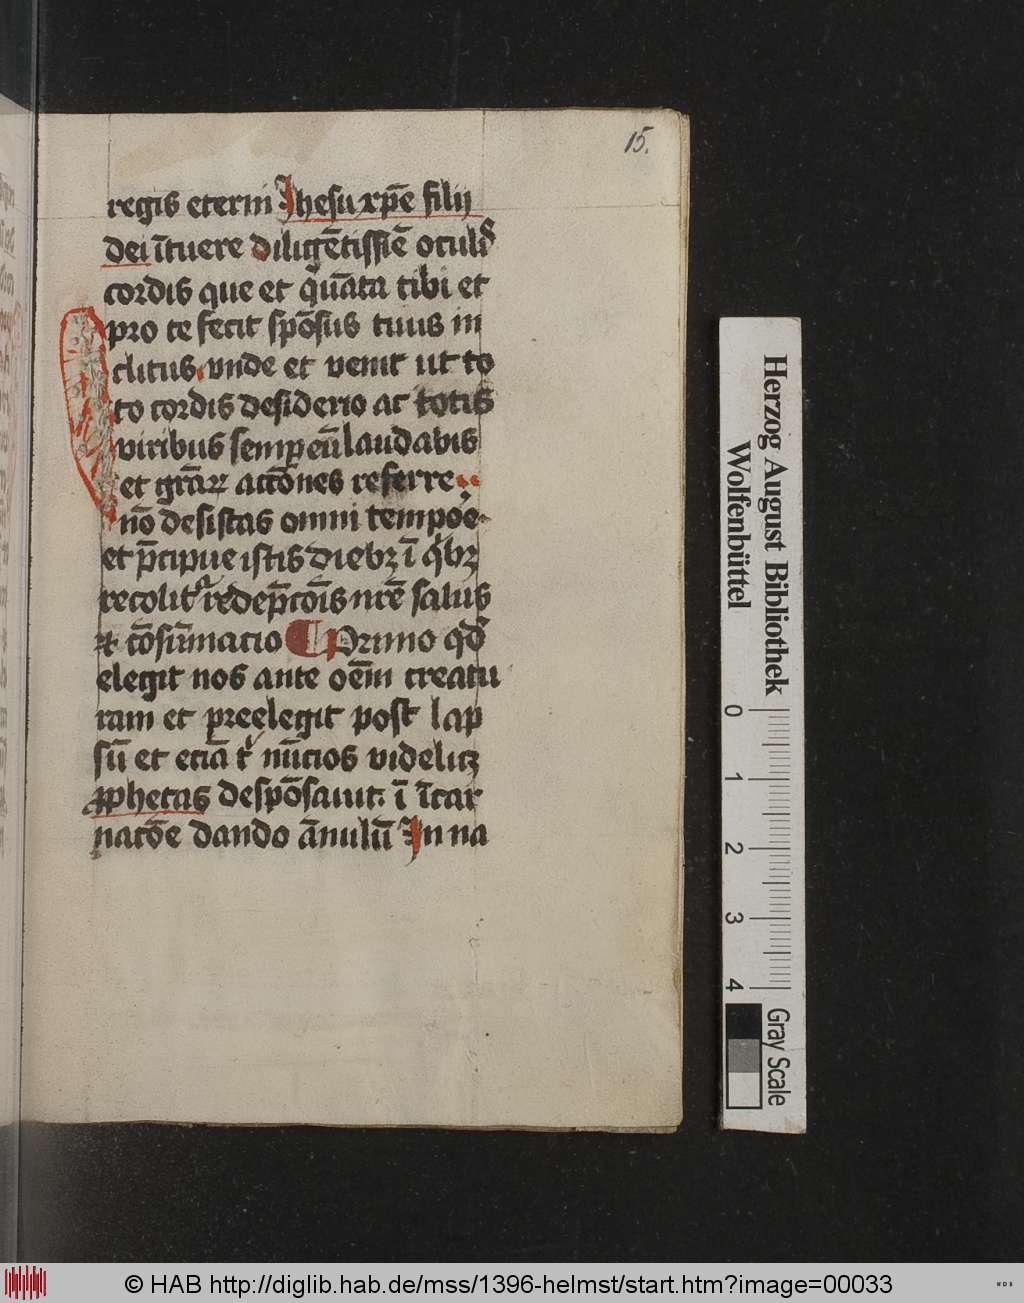 15.
regis eterni Jhesu xp̄e filij
dei ītuere diligēt​issīe oculis
cordis que et quāta tibi et
pro te fecit spōsus tuus in
clitus. vnde et venit ut to
to cordis desiderio ac totis
viribus semp eū laudabis
et grāꝝ actōnes referre
nō desistas omni tempoē
et p̄cipue istis diebꝫ ī qⁱbꝫ
recolitᷣ redēpcōis nr̄e salus
et cōsūmacio ¶ Primo qd̓
elegit nos ante oēm creatu
ram et preelegit post lap
sū et eciā nūcios videlitꝫ
ꝓphetas despōsauit. ī īcar
natōe dando ānulū In na
Herzog August Bibliothek
Wolfenbüttel
0 1 2 3 4
Gray Scale
© HAB http://diglib.hab.de/mss/1396-helmst/start.htm?image=00033